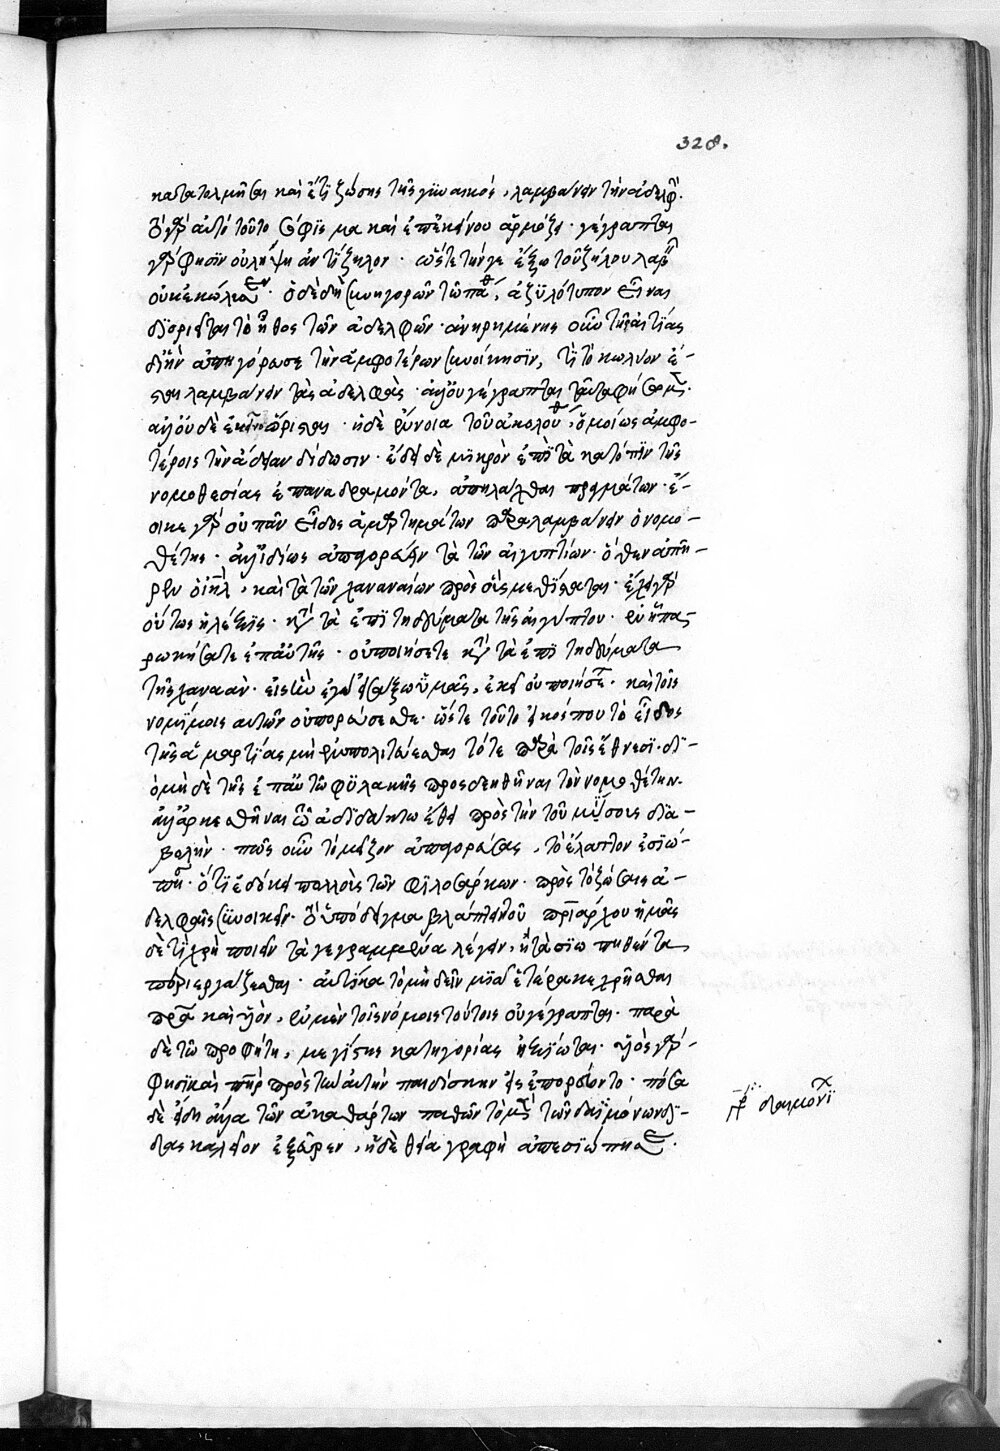 κατατολμήσει καὶ ἔτι ζώσης τῆς γυναικὸς, λαμβάνειν τὴν ἀδελφή.
τὸ γὰρ αὐτὸ τοῦτο σόφισμα καὶ ἐπεκείνου ἁρμόζει. γέγραπται
γὰρ φησὶν οὐ λήψη ἀντίζηλον. ὥστε τήνγε ἔξω τοῦ ζήλου λαβεῖν
οὐκ ἐκώλυσεν. ὁ δὲ δὴ συνηγορῶν τῶ πάθει, ἀζηλότυπον εἶναι
διορίζεται τὸ ἦθος τῶν ἀδελφῶν. ἀνηρημένης οὖν τῆς αἰτίας
δι' ἣν ἀπηγόρευσε τὴν ἀμφοτέρων συνοίκησιν, τί τὸ κωλύον ἔ-
σται λαμβάνειν τὰς ἀδελφὰς. ἀλλ' οὐ γέγραπται ταῦτα φήσομεν.
ἀλλ' οὐδὲ ἐκεῖνο ὥρισται. ἡ δὲ ἔννοια τοῦ ἀκολούθου, ὁμοίως ἀμφο-
τέροις τὴν ἄδειαν δίδωσιν. ἔδει δὲ μικρὸν ἐπὶ τὰ κατόπιν τῆς
νομοθεσίας ἐπαναδραμόντα, ἀπηλλάχθαι πραγμάτων. ἔ-
οικε γὰρ οὐ πᾶν εἶδος ἁμαρτημάτων παραλαμβάνειν ὁ νομο-
θέτης. ἀλλ' ἰδίως ἀπαγορεύειν τὰ τῶν αἰγυπτίων. ὅθεν ἀπῆ-
ρεν ὁ ἰηλ, καὶ τὰ τῶν χαναναίων πρὸς οὓς μεθίσταται. ἔχει γὰρ
οὕτως ἡ λέξις. κατὰ τὰ ἐπιτηδεύματα τῆς αἰγύπτου. ἐν ἧ πα-
ρωκήσατε ἐπ' αὐτῆς. οὐ ποιήσετε κατὰ τὰ ἐπιτηδεύματα
τῆς χαναάν. εἰς ἣν ἐγὼ εἰσάξω ὑμᾶς, ἐκεῖ οὐ ποιήσετε. καὶ τοῖς
νομίμοις αυτῶν οὐ πορεύσεσθε. ὥστε τοῦτο εἰκός που τὸ εἶδος
τῆς ἁμαρτίας μὴ ἐμπολιτεύεσθαι τότε παρὰ τοῖς ἔθνεσι. δι-
ὸ μὴ δὲ τῆς ἐπ' αὐτῶ φυλακῆς προσδεηθῆναι τὸν νομοθέτην.
ἀλλ' ἀρκεσθῆναι τῶ ἀδιδάκτω ἔθει πρὸς τὴν τοῦ μύσους δια-
βολὴν. πῶς οὖν τὸ μεῖζον ἀπαγορεύσας, τὸ ἔλαττον ἐσιώ-
πησεν. ὅτι ἐδόκει πολλοὺς τῶν φιλοσάρκων. πρὸς τὸ ζώσαις ἀ-
δελφαῖς συνοικεῖν. τὸ ὑπόδειγμα βλάπτειν τοῦ πατριάρχου ἡμᾶς
δὲ τί χρὴ ποιεῖν τὰ γεγραμμένα λέγειν, ἢ τὰ σιωπηθέντα
περιεργάζεσθαι. αὐτίκα τὸ μὴ δεῖν μιᾶ ἑτέρα κεχρῆσθαι
πρα καὶ υἱόν, ἐν μὲν τοῖς νόμοις τούτοις οὐ γέγραπται. παρὰ
δὲ τῶ προφήτη, μεγίστης κατηγορίας ἠξίωται. υἱὸς γάρ
φησι καὶ πηρ πρὸς τὴν αὐτὴν παιδίσκην εἰσεπορεύοντο. πόσα
δὲ εἴδη ἄλλα τῶν ἀκαθάρτων παθῶν τὸ μὲν τῶν δαιμόνων δι-
δασκαλεῖον ἐξεῦρεν, ἡ δὲ θεία γραφὴ ἀπεσιώπησεν.